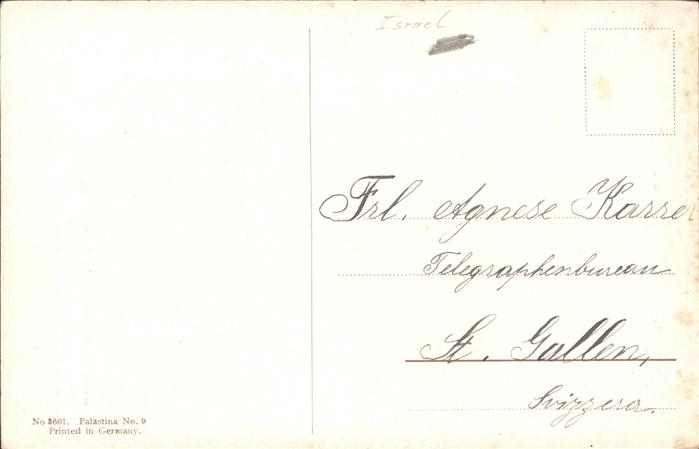 Israel
Frl. Agnese Karrer
Telegraphenbureau
St. Gallen,
Svizzera.
No 3601. Palästina No. 9
Printed in Germany.